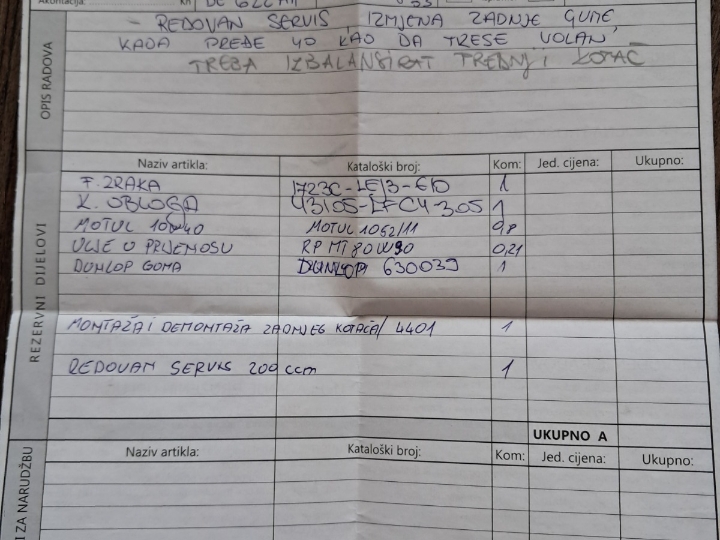 Akontacija:
kn
- REDOVAN SERVIS, IZMJENA ZADNJE GUME,
KADA PREĐE 40 KAO DA TRESE VOLAN
TREBA IZBALANSIRAT PREDNJI KOTAČ
OPIS RADOVA
Naziv artikla: Kataloški broj: Kom: Jed. cijena: Ukupno:
F. ZRAKA 1
K. OBLOGA 43105- 1
MOTUL 10W40 MOTUL 1062/11 0,8
ULJE U PRIJENOSU RP MT 80W90 0,21
DUNLOP GOMA DUNLOP 630039 1
MONTAŽA I DEMONTAŽA ZADNJEG KOTAČA / 4401 1
REDOVAN SERVIS 200 ccm 1
REZERVNI DIJELOVI
UKUPNO A
Naziv artikla: Kataloški broj: Kom: Jed. cijena: Ukupno:
I ZA NARUDŽBU